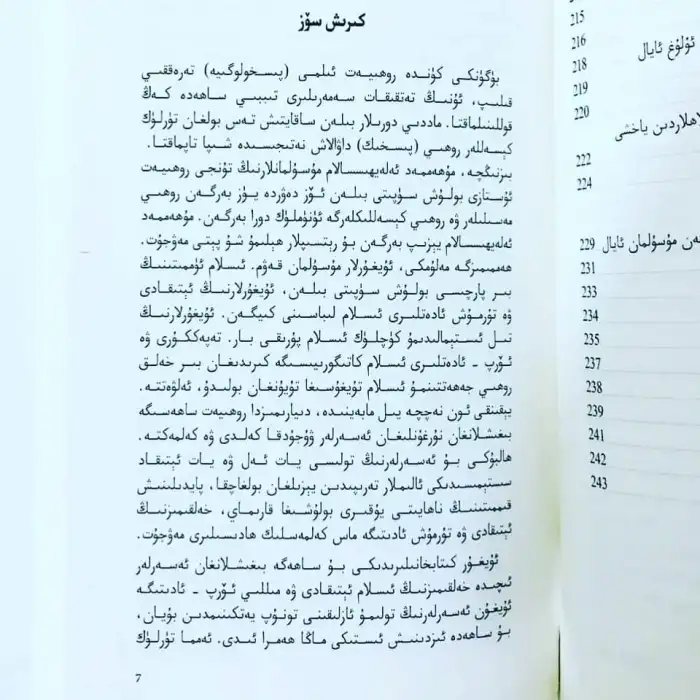 كىرىش سۆز
بۈگۈنكى كۈندە روھىيەت ئىلمى (پىسخولوگىيە) تەرەققىي
قىلىپ، ئۇنىڭ تەتقىقات سەمەرىلىرى تىببىي ساھەدە كەڭ
قوللىنىلماقتا. ماددىي دورىلار بىلەن ساقايتىش تەس بولغان تۈرلۈك
كېسەللەر روھىي (پىسخىك) داۋالاش نەتىجىسىدە شىپا تاپماقتا.
بىزنىڭچە، مۇھەممەد ئەلەيھىسسالام مۇسۇلمانلارنىڭ تۇنجى روھىيەت
ئۇستازى بولۇش سۈپىتى بىلەن ئۆز دەۋردە يۈز بەرگەن روھىي
مەسىلىلەر ۋە روھىي كېسەللىكلەرگە ئۈنۈملۈك دورا بەرگەن. مۇھەممەد
ئەلەيھىسسالام يېزىپ بەرگەن بۇ رېتسىپلار ھېلىمۇ شۇ پېتى مەۋجۇت.
ھەممىمىزگە مەلۇمكى، ئۇيغۇرلار مۇسۇلمان قەۋم. ئىسلام ئۈممىتىنىڭ
بىر پارچىسى بولۇش سۈپىتى بىلەن، ئۇيغۇرلارنىڭ ئېتىقادى
ۋە تۇرمۇش ئادەتلىرى ئىسلام لىباسىنى كىيگەن. ئۇيغۇرلارنىڭ
تىل ئىستېمالىدىمۇ كۈچلۈك ئىسلام پۇرىقى بار. تەپەككۇرى ۋە
ئۆرپ - ئادەتلىرى ئىسلام كاتېگورىيىسىگە كىرىدىغان بىر خەلق
روھىي جەھەتتىنمۇ ئىسلام تۇيغۇسىغا تويۇنغان بولىدۇ، ئەلۋەتتە.
يېقىنقى ئون نەچچە يىل مابەينىدە، دىيارىمىزدا روھىيەت ساھەسىگە
بېغىشلانغان نۇرغۇنلىغان ئەسەرلەر ۋۇجۇدقا كەلدى ۋە كەلمەكتە.
ھالبۇكى بۇ ئەسەرلەرنىڭ تولىسى يات ئەل ۋە يات ئېتىقاد
سىستېمىسىدىكى ئالىملار تەرىپىدىن يېزىلغان بولغاچقا، پايدىلىنىش
قىممىتىنىڭ ناھايىتى يۇقىرى بولۇشىغا قارىماي، خەلقىمىزنىڭ
ئېتىقادى ۋە تۇرمۇش ئادىتىگە ماس كەلمەسلىك ھادىسىلىرى مەۋجۇت.
ئۇيغۇر كىتابخانىلىرىدىكى بۇ ساھەگە بېغىشلانغان ئەسەرلەر
ئىچىدە خەلقىمىزنىڭ ئىسلام ئېتىقادى ۋە مىللىي ئۆرپ - ئادىتىگە
ئۇيغۇن ئەسەرلەرنىڭ تولىمۇ ئازلىقىنى تونۇپ يەتكىنىمدىن بۇيان،
بۇ ساھەدە ئىزدىنىش ئىستىكى ماڭا ھەمرا ئىدى. ئەمما تۈرلۈك
7
215
216
ئۇلۇغ ئايال
218
219
220
ياخشى
222
224
229
مۇسۇلمان ئايال
231
233
234
235
237
238
239
241
242
243